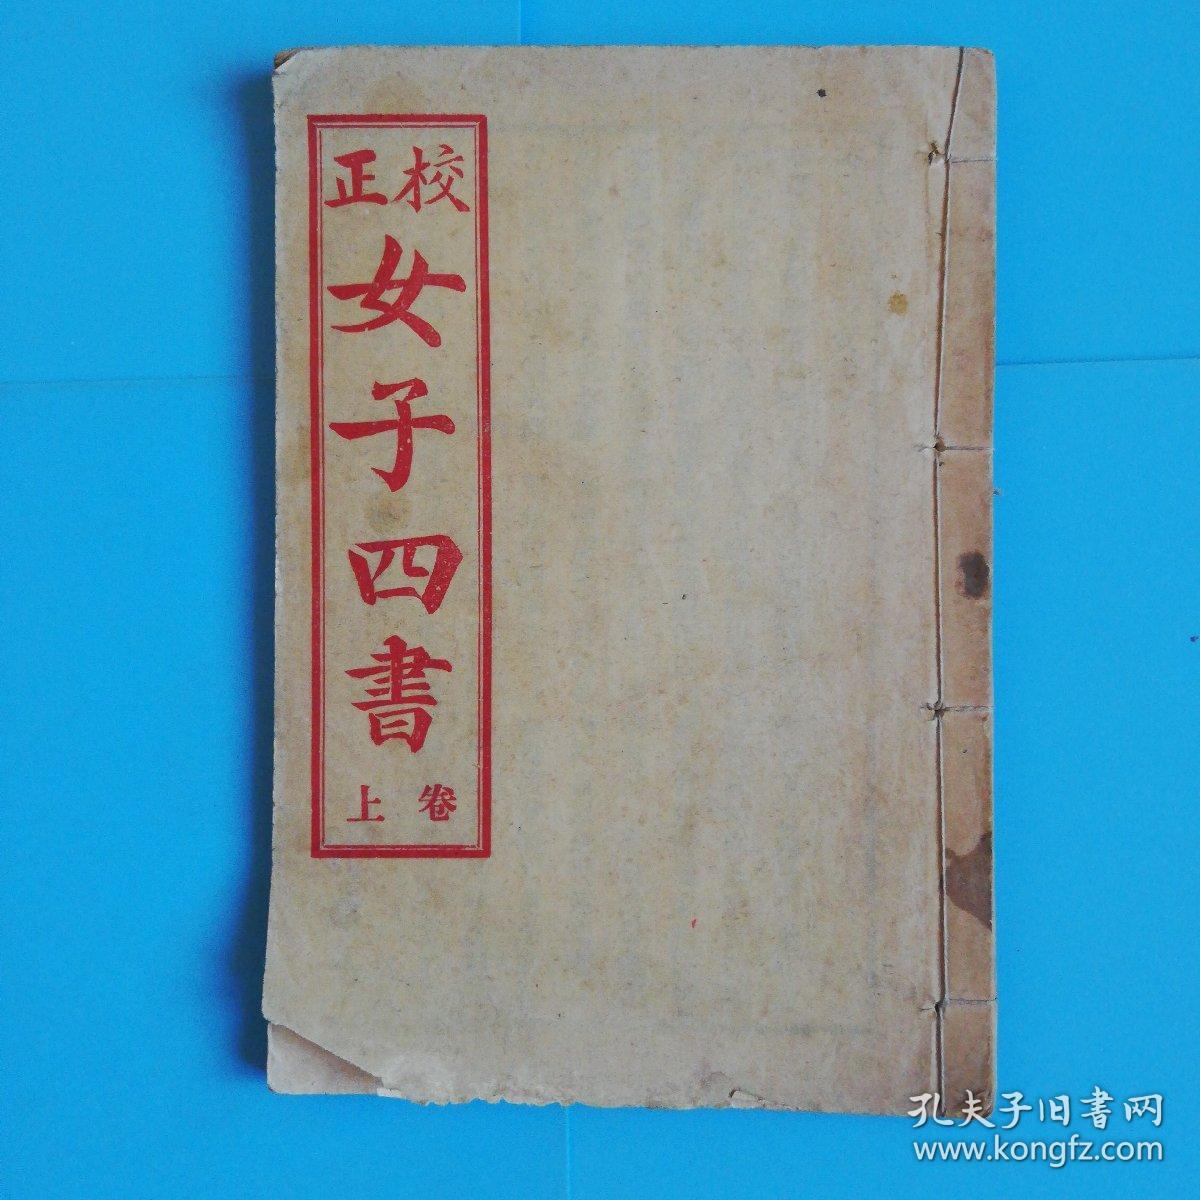 校正
女子四書
卷上
孔夫子旧書网
www.kongfz.com